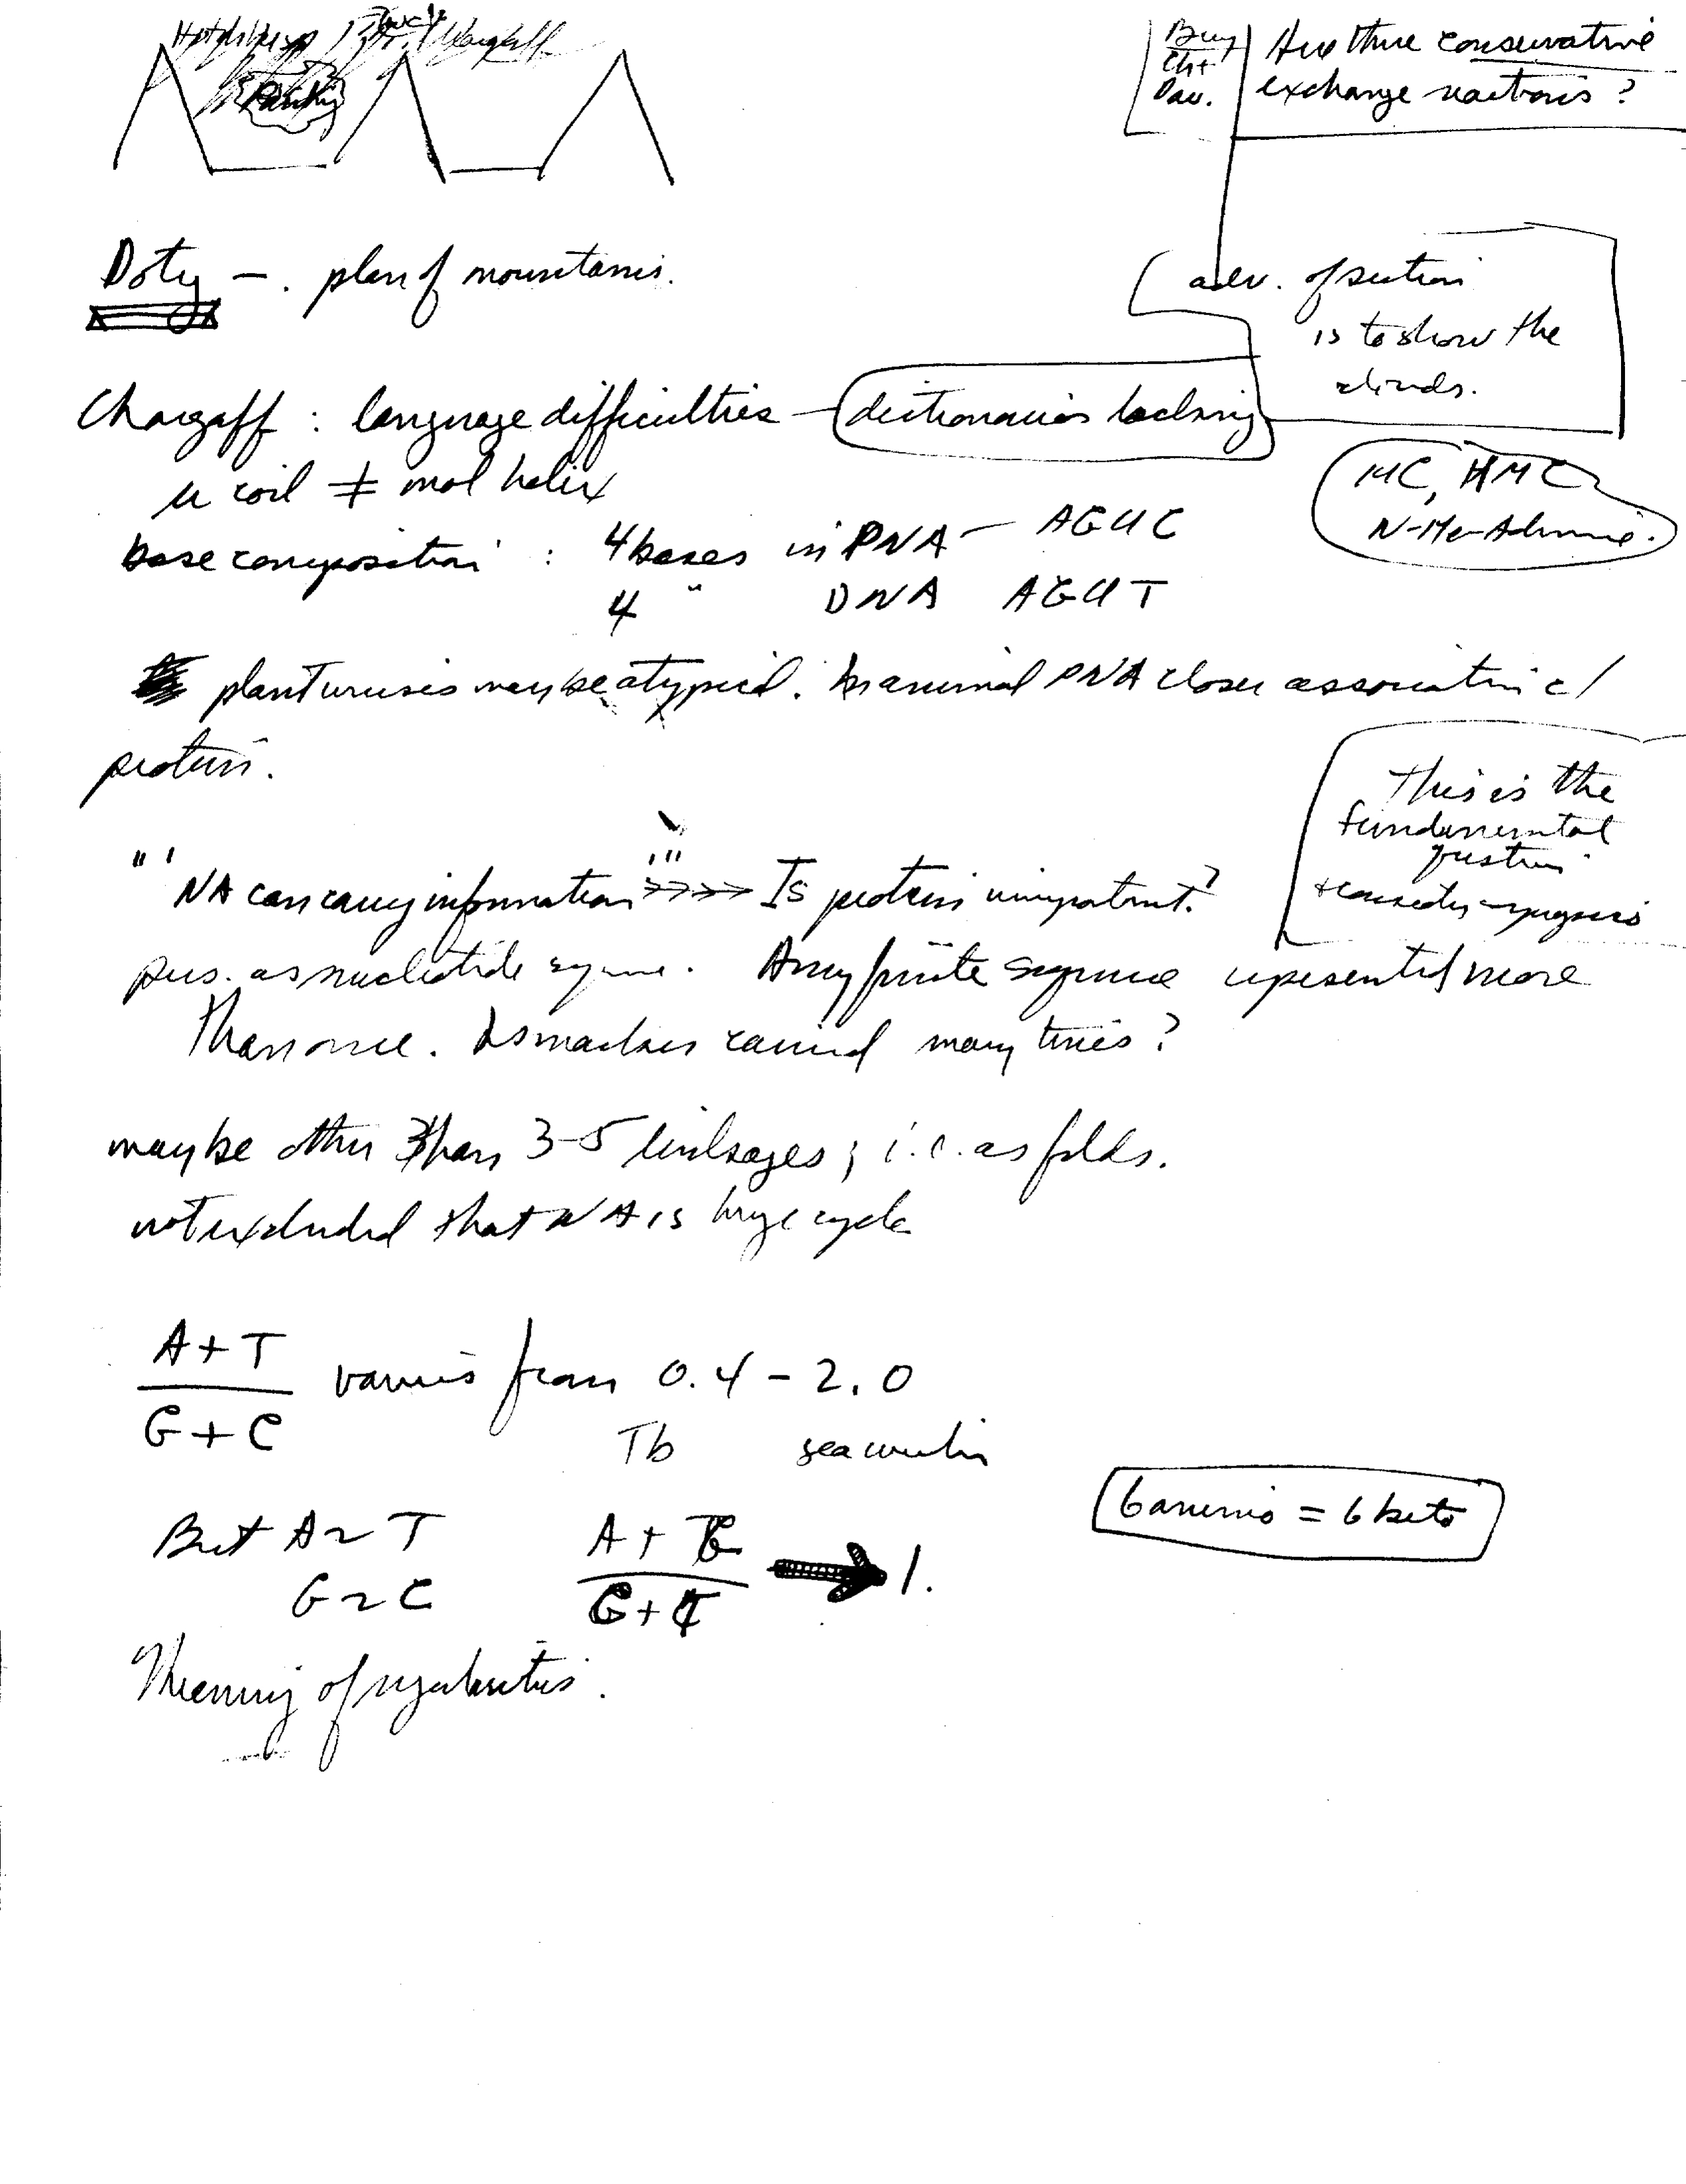 Hotchkiss Chargaff
Are there conservative
exchange reactions?
Doty — . plan of mountains.
adv. of section
is to show the
clouds.
Chargaff : language difficulties — dictionaries lacking
u coil ≠ mol helix
MC, HMC
N-Me-Adenine.
base composition : 4 bases in PNA — AGUC
4 " DNA AGUT
plant viruses may be atypical. In animal PNA closer association c/
protein.
This is the
fundamental
question
" ' NA can carry information ' " >>>> Is protein unimportant?
pres. as nucleotide sequence. Any finite sequence represented more
than once. Is marker carried many times?
may be other than 3-5 linkages ; i.e. as folds.
not excluded that NA is huge cycle
A + T
G + C
varies from 0.4 – 2.0
Tb sea urchin
6 amino = 6 keto
But A ~ T
G ~ C
A + C
G + T
→ 1.
Meaning of regularities.